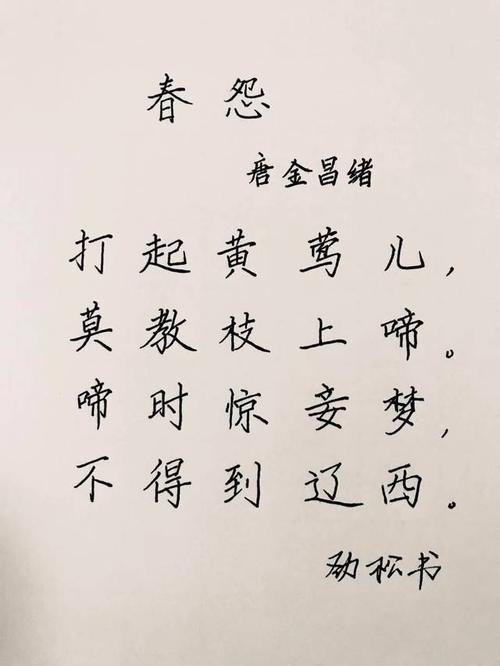 春怨
唐金昌绪
打起黄莺儿,
莫教枝上啼。
啼时惊妾梦,
不得到辽西。
劲松书